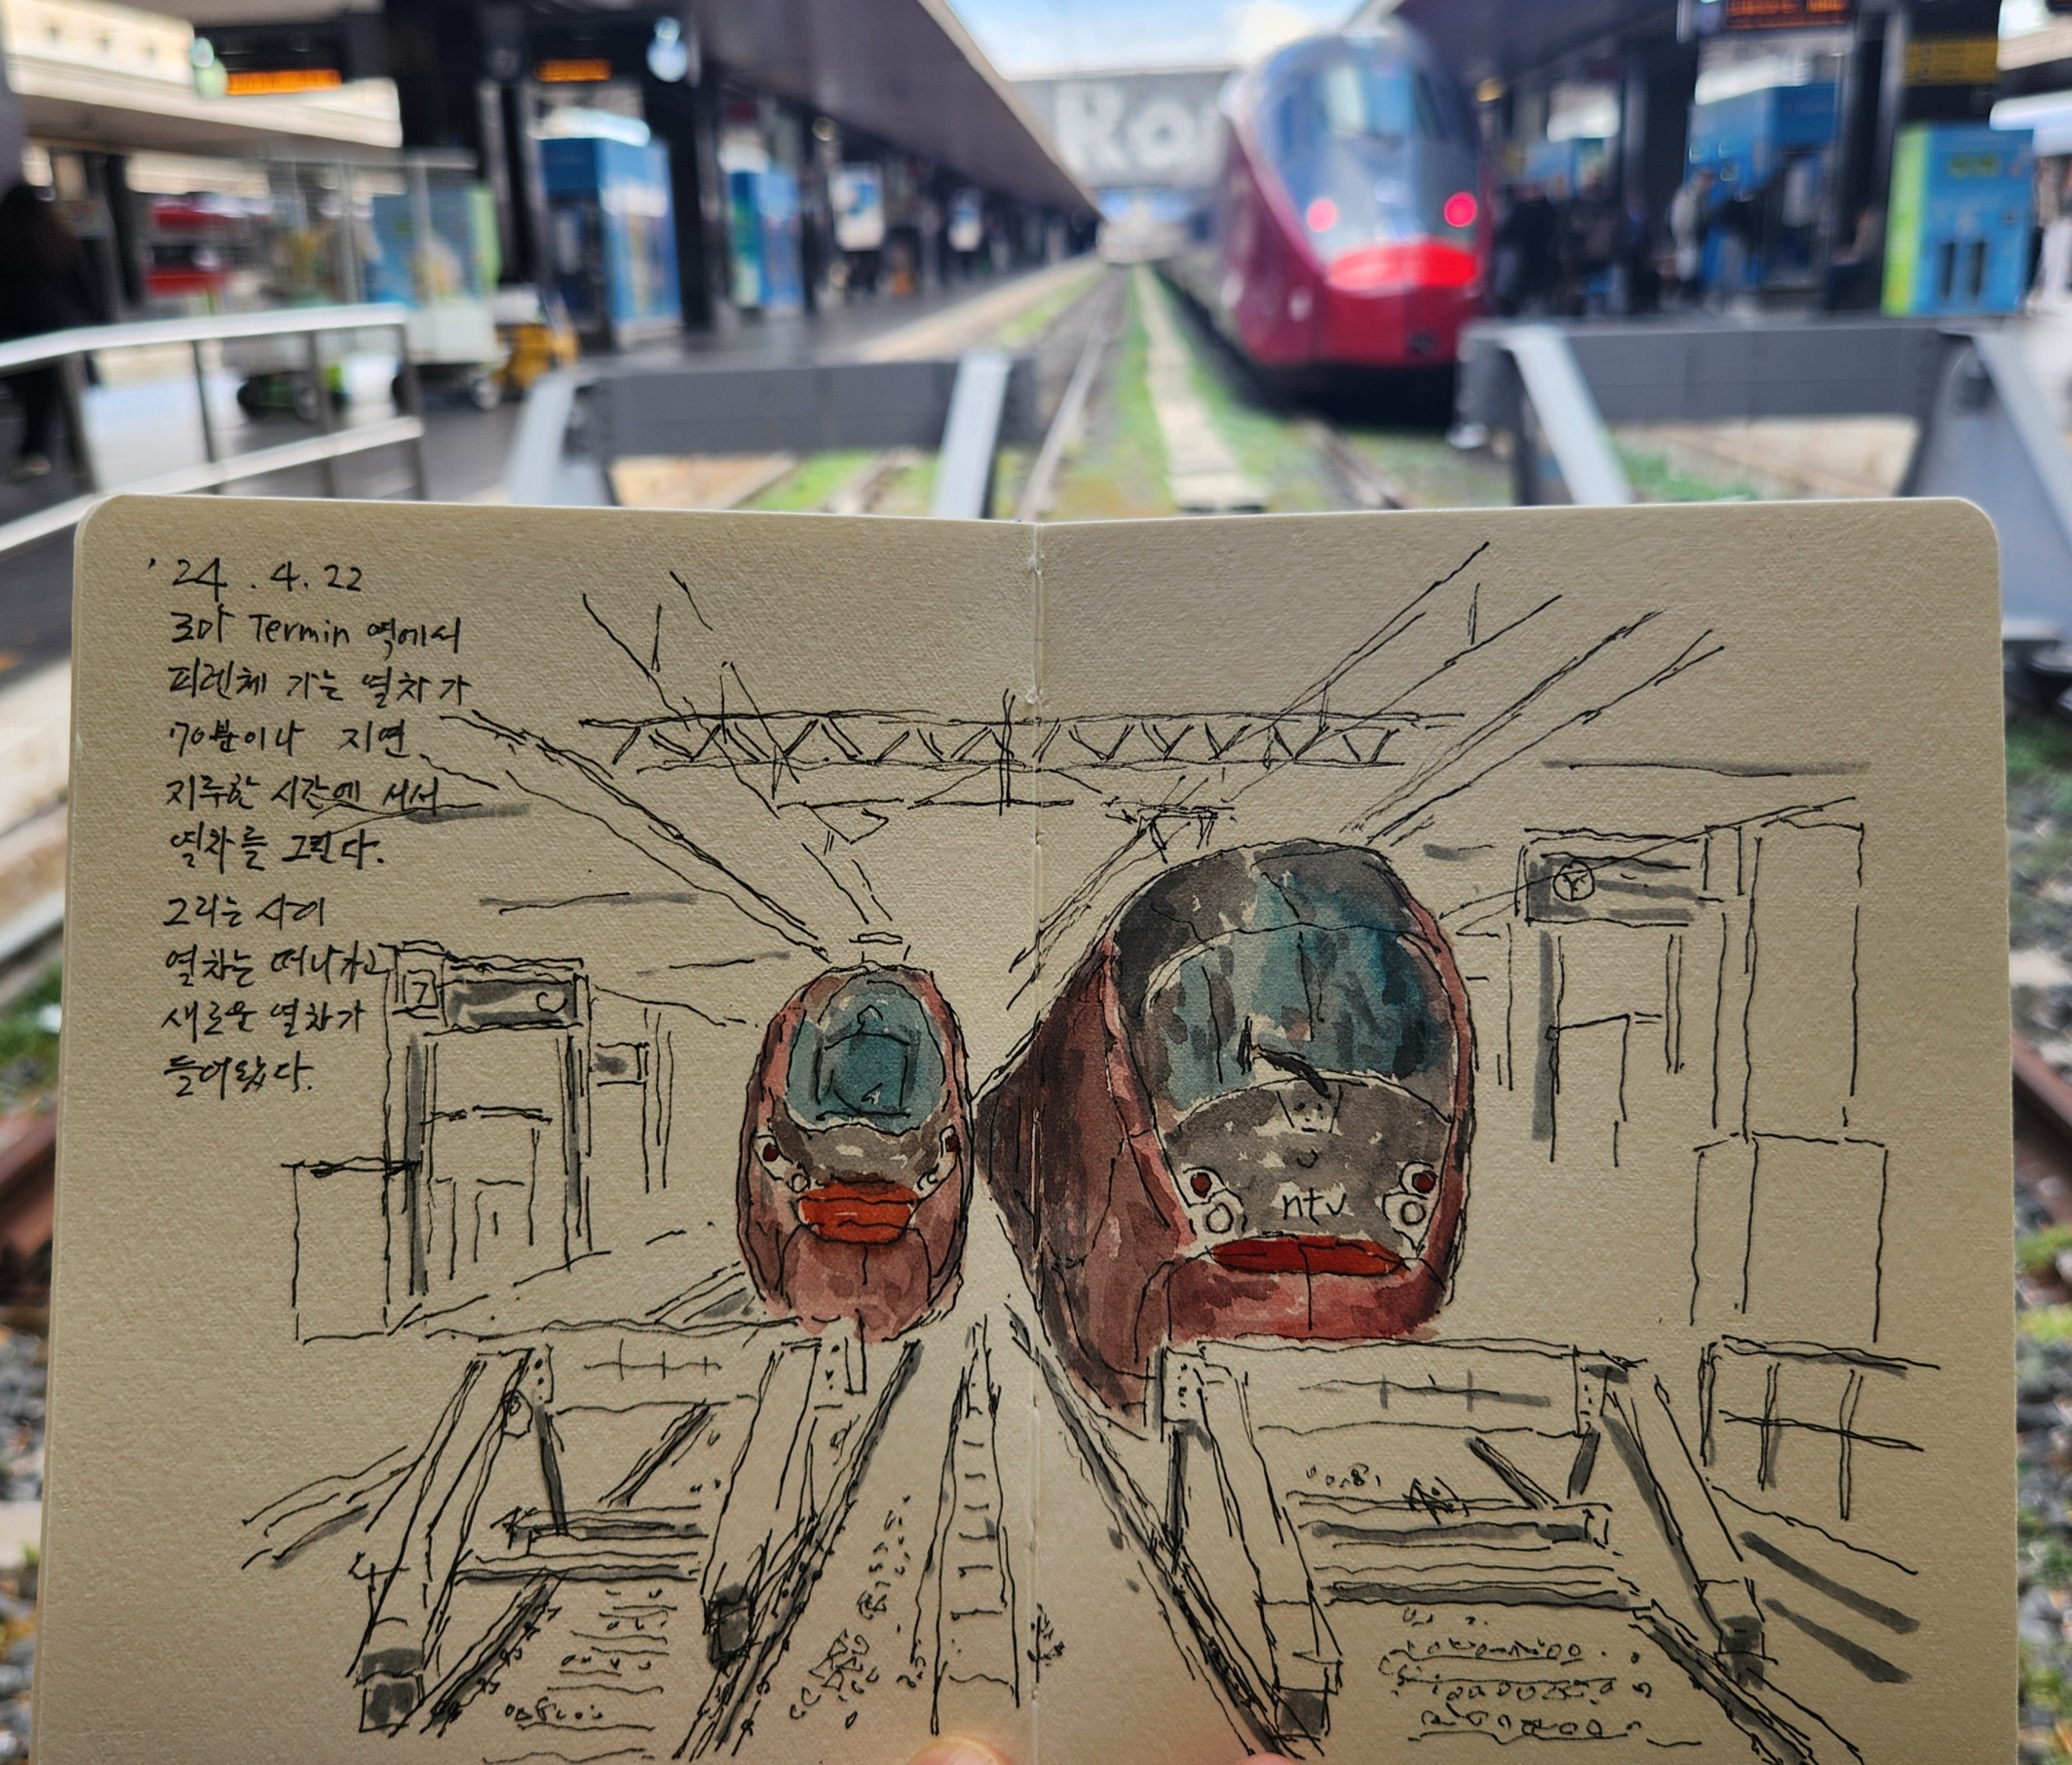 Ro
'24.4.22
로마 Termin 역에서
피렌체 가는 열차가
70분이나 지연
지루한 시간에 서서
열차를 그린다.
그리는 사이
열차는 떠나가고
새로운 열차가
들어왔다.
7
ntv